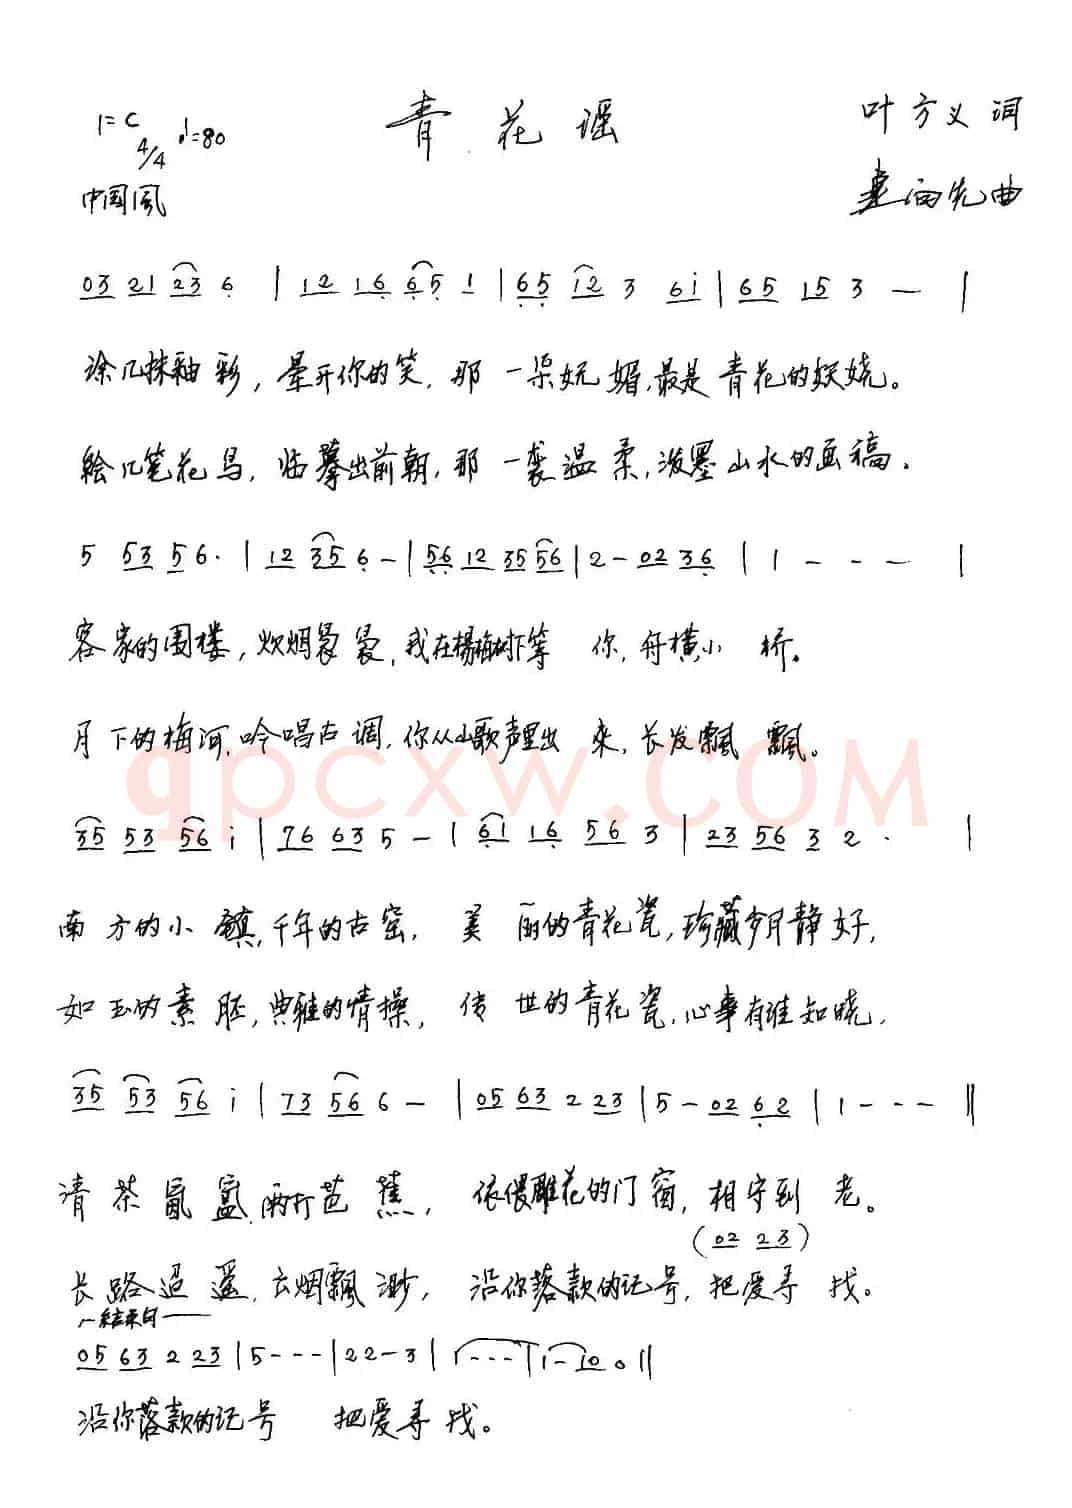 1=C 4/4 ♩=80 青花谣 叶方义 词
中国風 曲
03 21 23 6 | 12 16 65 1 | 65 12 3 6i | 65 15 3 — |
涂几抹釉彩，晕开你的笑，那一朵妩媚，最是青花的妖娆。
绘几笔花鸟，临摹出前朝，那一袭温柔，泼墨山水的画稿。
5 53 56· | 12 35 6 - | 56 12 35 56 | 2 - 02 36 | 1 - - - |
客家的围楼，炊烟袅袅，我在杨梅树下等你，舟横小桥。
月下的梅河，吟唱古调，你从山歌声里出来，长发飘飘。
qpcxw.COM
35 53 56 i | 76 63 5 - | 61 16 56 3 | 23 56 3 2 · |
南方的小镇，千年的古窑，美丽的青花瓷，珍藏岁月静好，
如玉的素胚，典雅的情操，传世的青花瓷，心事有谁知晓，
35 53 56 i | 73 56 6 - | 05 63 2 23 | 5 - 02 62 | 1 - - - ‖
清茶氤氲，雨打芭蕉，依偎雕花的门窗，相守到老。
(02 23)
长路迢遥，云烟飘渺，沿你落款的记号，把爱寻找。
结束句
05 63 2 23 | 5 - - - | 22 - 3 | 1 - - - | 1 - 10 0 ‖
沿你落款的记号 把爱寻找。